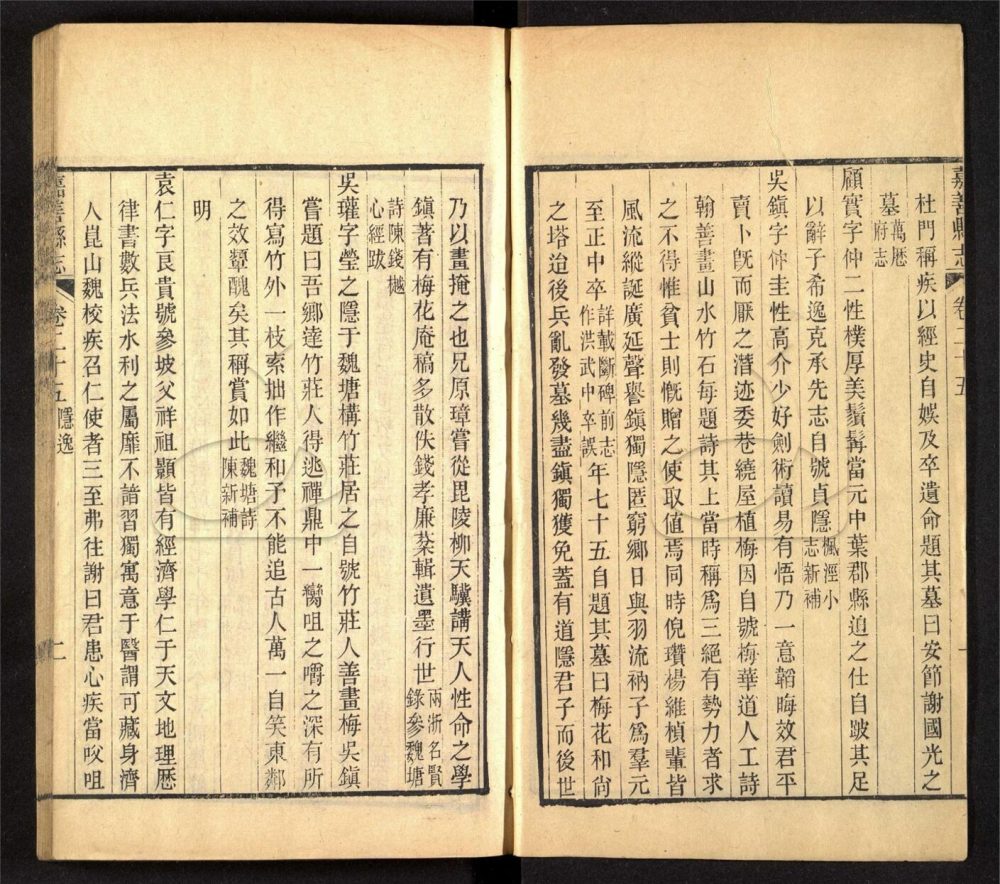 嘉善縣志 卷二十五
杜門稱疾以經史自娛及卒遺命題其墓曰安節謝國光之
墓萬歷府志
顧實字仲二性樸厚美鬚髯當元中葉郡縣迫之仕自跛其足
以辭子希逸克承先志自號貞隱楓涇小志新補
吳鎮字仲圭性高介少好劍術讀易有悟乃一意韜晦效君平
賣卜旣而厭之潛迹委巷繞屋植梅因自號梅華道人工詩
翰善畫山水竹石每題詩其上當時稱爲三絕有勢力者求
之不得惟貧士則慨贈之使取值焉同時倪瓚楊維楨輩皆
風流縱誕廣延聲譽鎮獨隱匿窮鄉日與羽流衲子爲羣元
至正中卒詳載斷碑前志作洪武中卒誤年七十五自題其墓曰梅花和尙
之塔迨後兵亂發墓幾盡鎮獨獲免蓋有道隱君子而後世
乃以畫掩之也兄原璋嘗從毘陵柳天驥講天人性命之學
鎮著有梅花庵稿多散佚錢孝廉棻輯遺墨行世兩浙名賢錄參魏塘
詩陳錢樾心經跋
吳瓘字瑩之隱于魏塘構竹莊居之自號竹莊人善畫梅吳鎮
嘗題曰吾鄉達竹莊人得逃禪鼎中一臠咀之嚼之深有所
得寫竹外一枝索拙作繼和予不能追古人萬一自笑東鄰
之效顰醜矣其稱賞如此魏塘詩陳新補
明
袁仁字良貴號參坡父祥祖顥皆有經濟學仁于天文地理歷
律書數兵法水利之屬靡不諳習獨寓意于醫謂可藏身濟
人崑山魏校疾召仁使者三至弗往謝曰君患心疾當㕮咀
嘉善縣志 卷二十五 隱逸 二